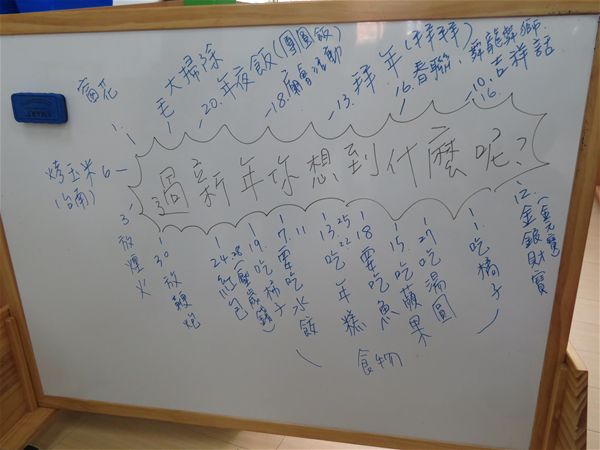 窗花
1.
大掃除
20.年夜飯(團圓飯)
18.廟會活動
13.拜年(拜拜)
16.春聯、舞龍舞獅
10.吉祥話
16.
烤玉米 6
(台南)
過新年你想到什麼呢?
3
放煙火
1
30
放鞭炮
24 28
紅包
(壓歲錢)
19.
吃柿子
7. 11
要吃水餃
13. 25
吃 22
年糕
18
要吃魚
15.
吃蘋果
27
吃湯圓
1.
吃橘子
12.
金銀財寶
(金元寶)
食物